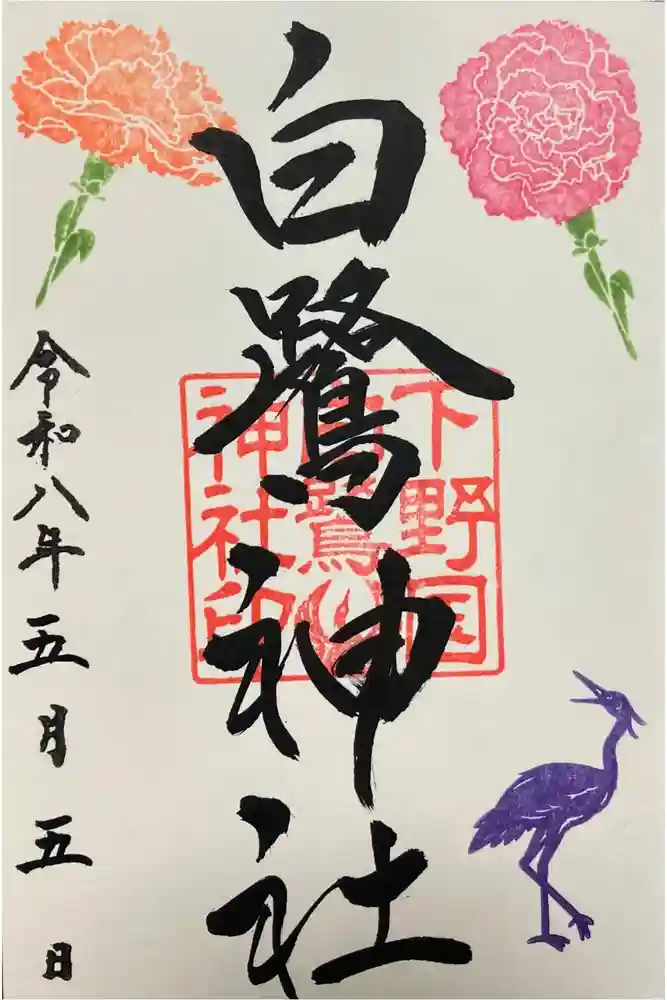 白鷺神社
下野国
白鷺
神社印
令和八年五月五日